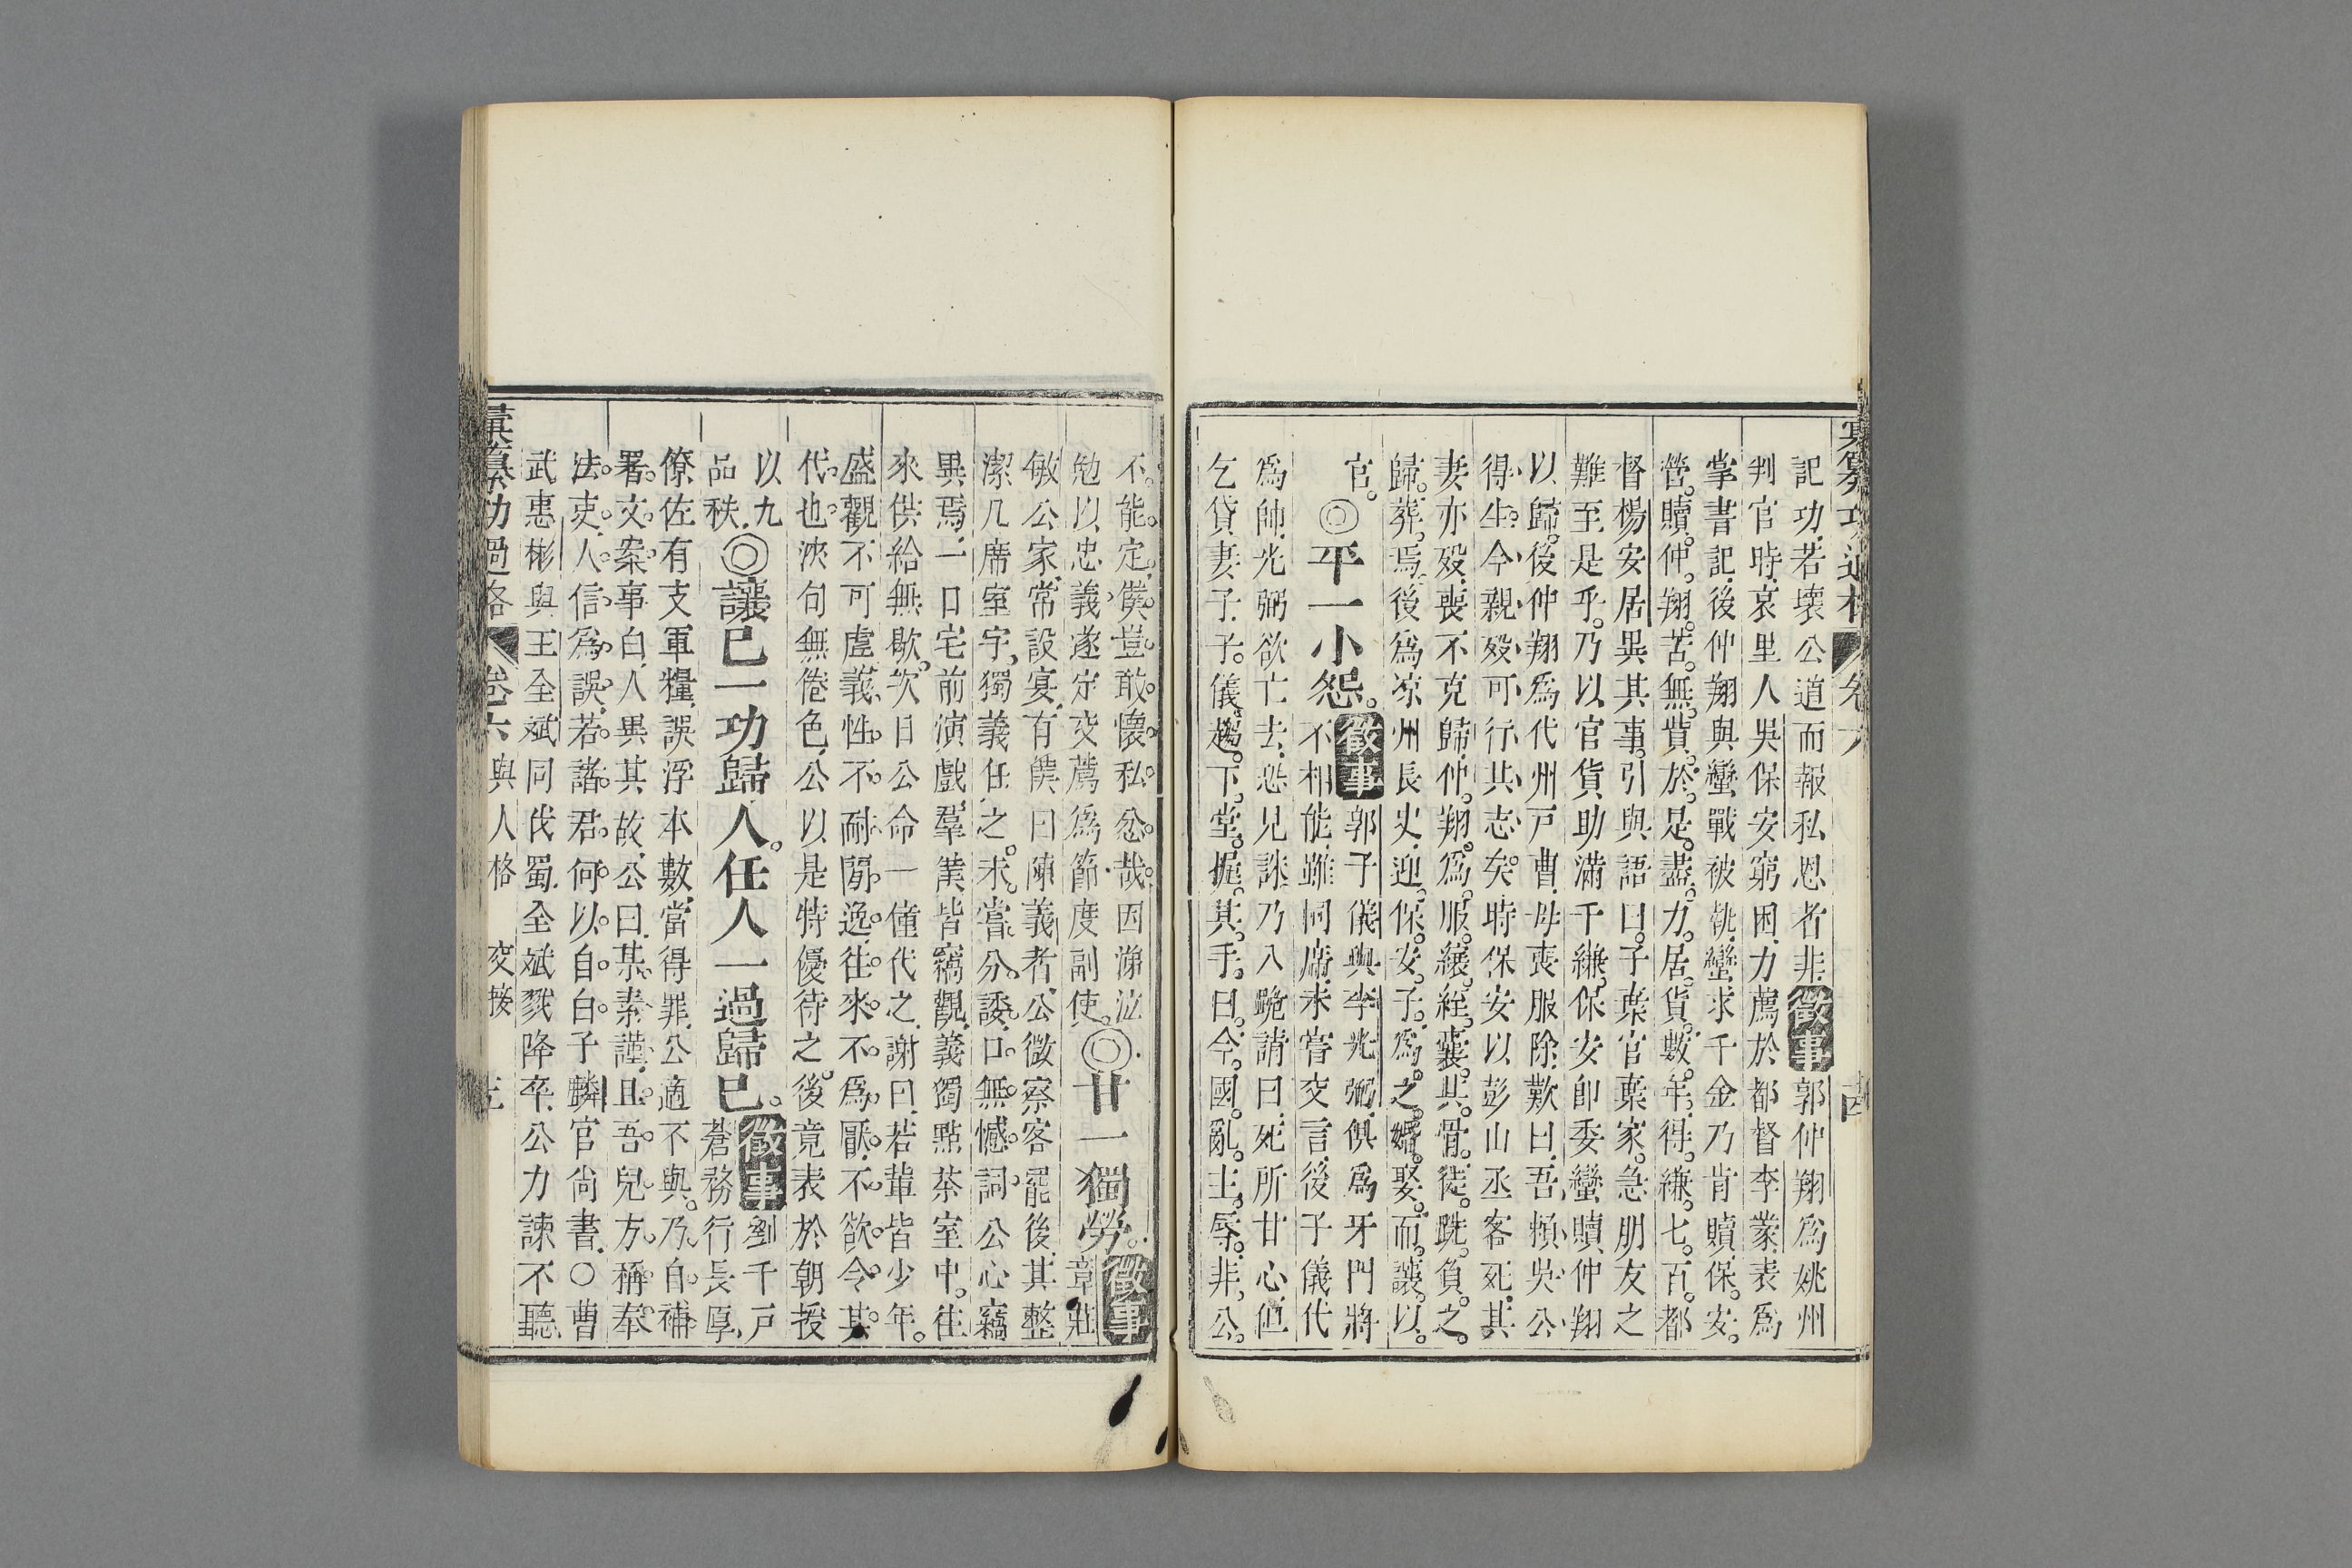 彙纂功過格 卷六 十四
記功若壞公道而報私恩者非徵事郭仲翔爲姚州
判官時哀里人吳保安窮困力薦於都督李蒙表爲
掌書記後仲翔與蠻戰被執蠻求千金乃肯贖保安
營贖仲翔苦無貲於是盡力居貨數年得縑七百都
督楊安居異其事引與語曰子棄官棄家急朋友之
難至是乎乃以官貨助滿千縑保安卽委蠻贖仲翔
以歸後仲翔爲代州戸曹母喪服除歎曰吾頼吳公
得生今親歿可行其志矣時保安以彭山丞客死其
妻亦歿喪不克歸仲翔爲服縗絰囊其骨徒跣負之
歸葬焉後爲凉州長史迎保安子爲之婚娶而讓以
官◎平一小怨徵事郭子儀與李光弼俱爲牙門將
不相能雖同席未嘗交言後子儀代
爲帥光弼欲亡去恐見誅乃入跪請曰死所甘心但
乞貸妻子子儀趨下堂握其手曰今國亂主辱非公
不能定僕豈敢懷私忿哉因涕泣
勉以忠義遂定交薦爲節度副使◎甘一獨勞徵事章莊
敏公家常設宴有僕曰陳義者公微察客罷後其整
潔几席室宇獨義任之未嘗分諉口無憾詞公心竊
異焉一口宅前演戲羣僕皆竊觀義獨點茶室中往
來供給無歇次日公命一僮代之謝曰若輩皆少年
盛觀不可虛義性不耐閒逸往來不爲厭不欲令其
代也浹旬無倦色公以是特優待之後竟表於朝授
以九品秩◎讓已一功歸人任人一過歸已徵事劉千戸
蒼務行長厚
僚佐有支軍糧誤浮本數當得罪公適不與乃自補
署文案事白人異其故公曰某素謹且吾兒方稱奉
法吏人信爲誤若諸君何以自白子麟官尙書○曹
武惠彬與王全斌同伐蜀全斌戮降卒公力諫不聽
彙纂功過格 卷六 與人格 交接